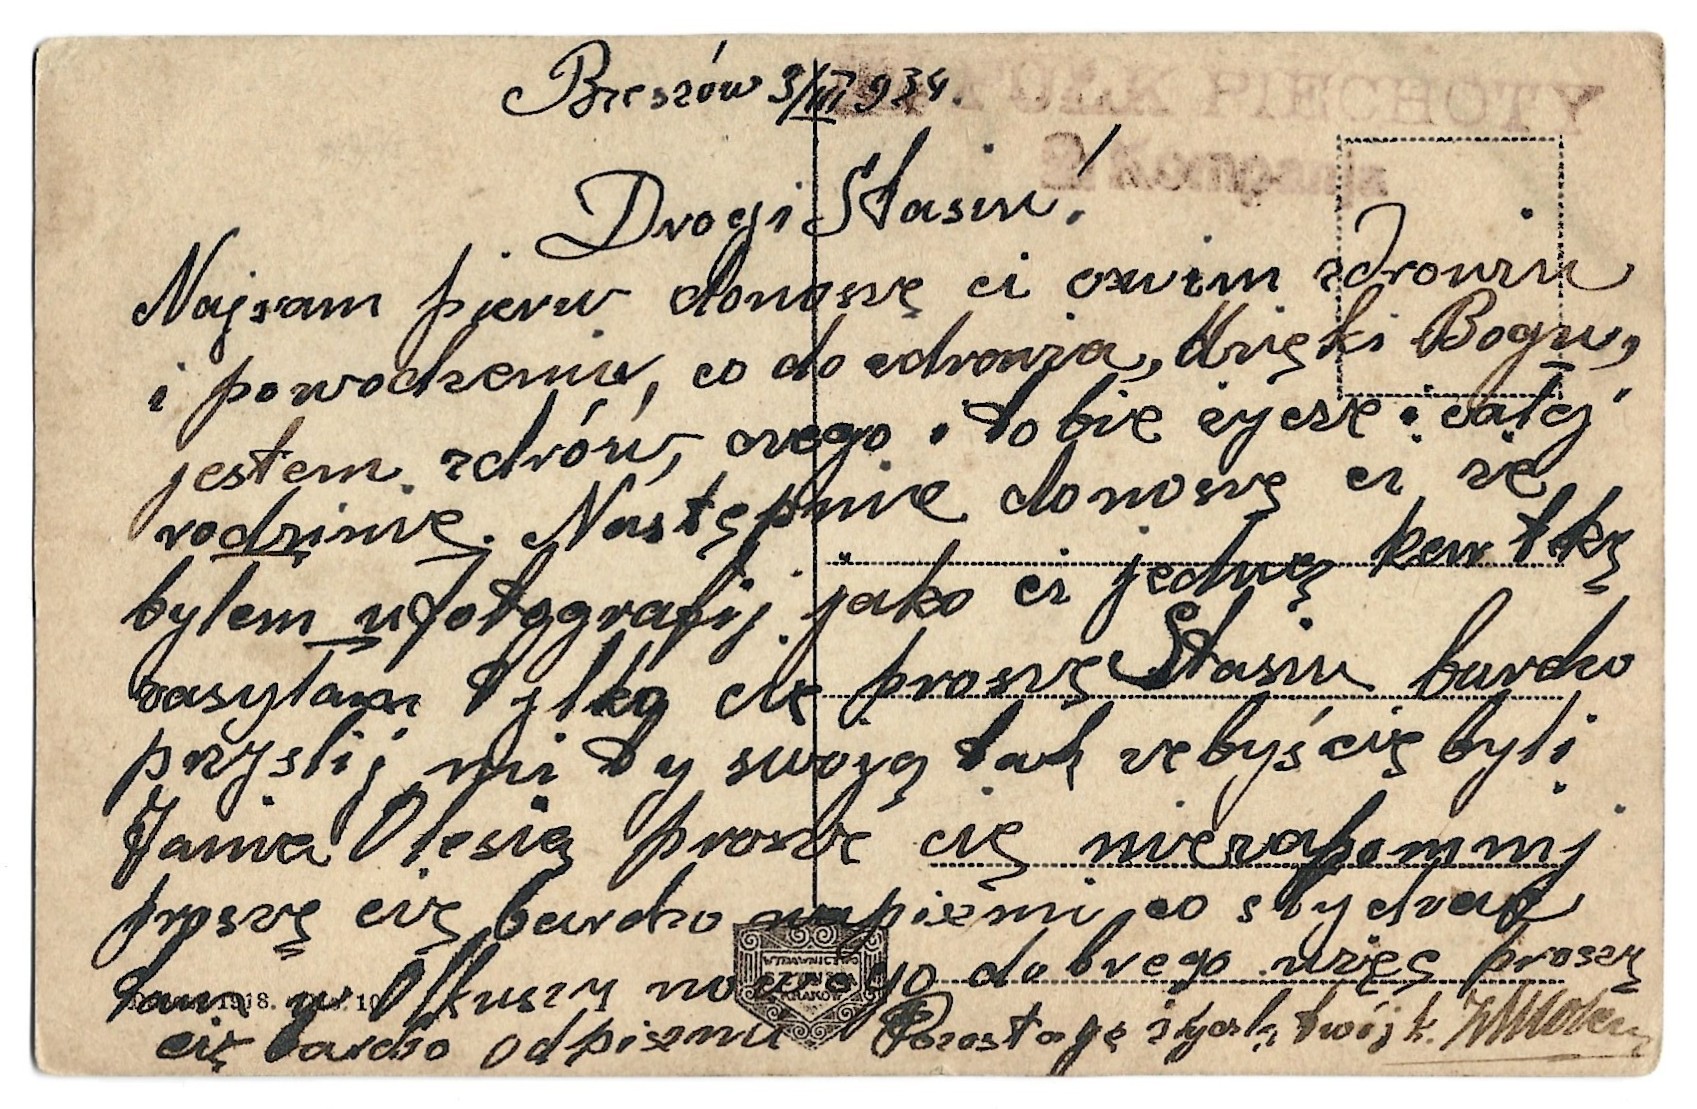 Brzeszów 3/III 934.
PUŁK PIECHOTY
Drogi Stasiu!
Najsam pierw donoszę ci oswim zdrowiu
i powodzeniu, co do zdrowia, dzięki Bogu,
jestem zdrów, czego i tobie życzę i całej
rodzinie. Następnie donoszę ci że
bylem ufotografij jako ci jednę kartkę
zasyłam tylko cię proszę Stasiu bardzo
przyslij mi ty swoją tak żebyście byli
Jania Olesią prosze cię niezapomnij
proszę cię bardzo napiszmi co słychać
tam w Olkuszy nowego dobrego więc proszę
cię bardzo odpiszmi Pozostaję życzl. twój k.
WYDAWNICTWO
KRAKÓW